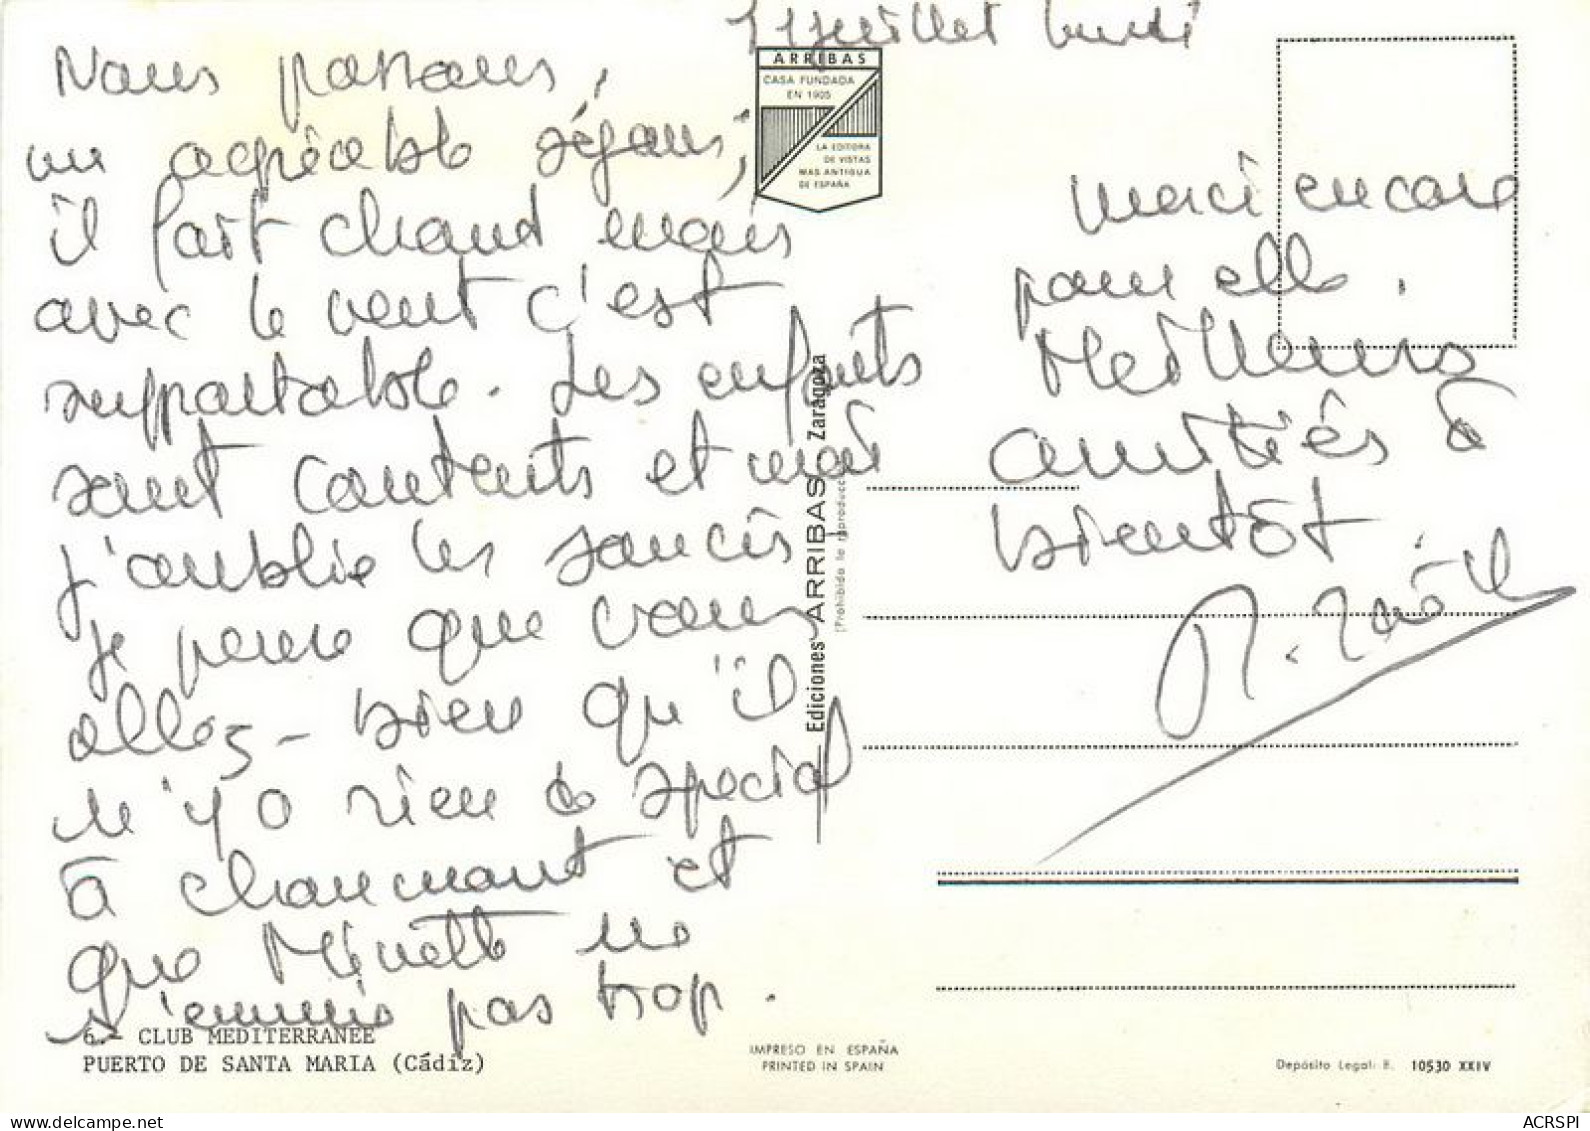 11 juillet lundi
Nous passons,
un agréable séjour,
il fait chaud mais
avec le vent c'est
supportable. Les enfants
sont contents et moi
j'oublie les soucis
je pense que vous
allez bien qu'il
n'y a rien de spécial
à charmant et
que Minette ne
s'ennuie pas trop.
merci encore
pour elle.
Meilleures
amitiés à
bientôt.
ARRIBAS
CASA FUNDADA
EN 1905
LA EDITORA
DE VISTAS
MAS ANTIGUA
DE ESPAÑA
Ediciones ARRIBAS Zaragoza
(Prohibida la reproducc
6.- CLUB MEDITERRANEE
PUERTO DE SANTA MARIA (Cádiz)
IMPRESO EN ESPAÑA
PRINTED IN SPAIN
Depósito Legal: B. 10530 XXIV
ACRSPI